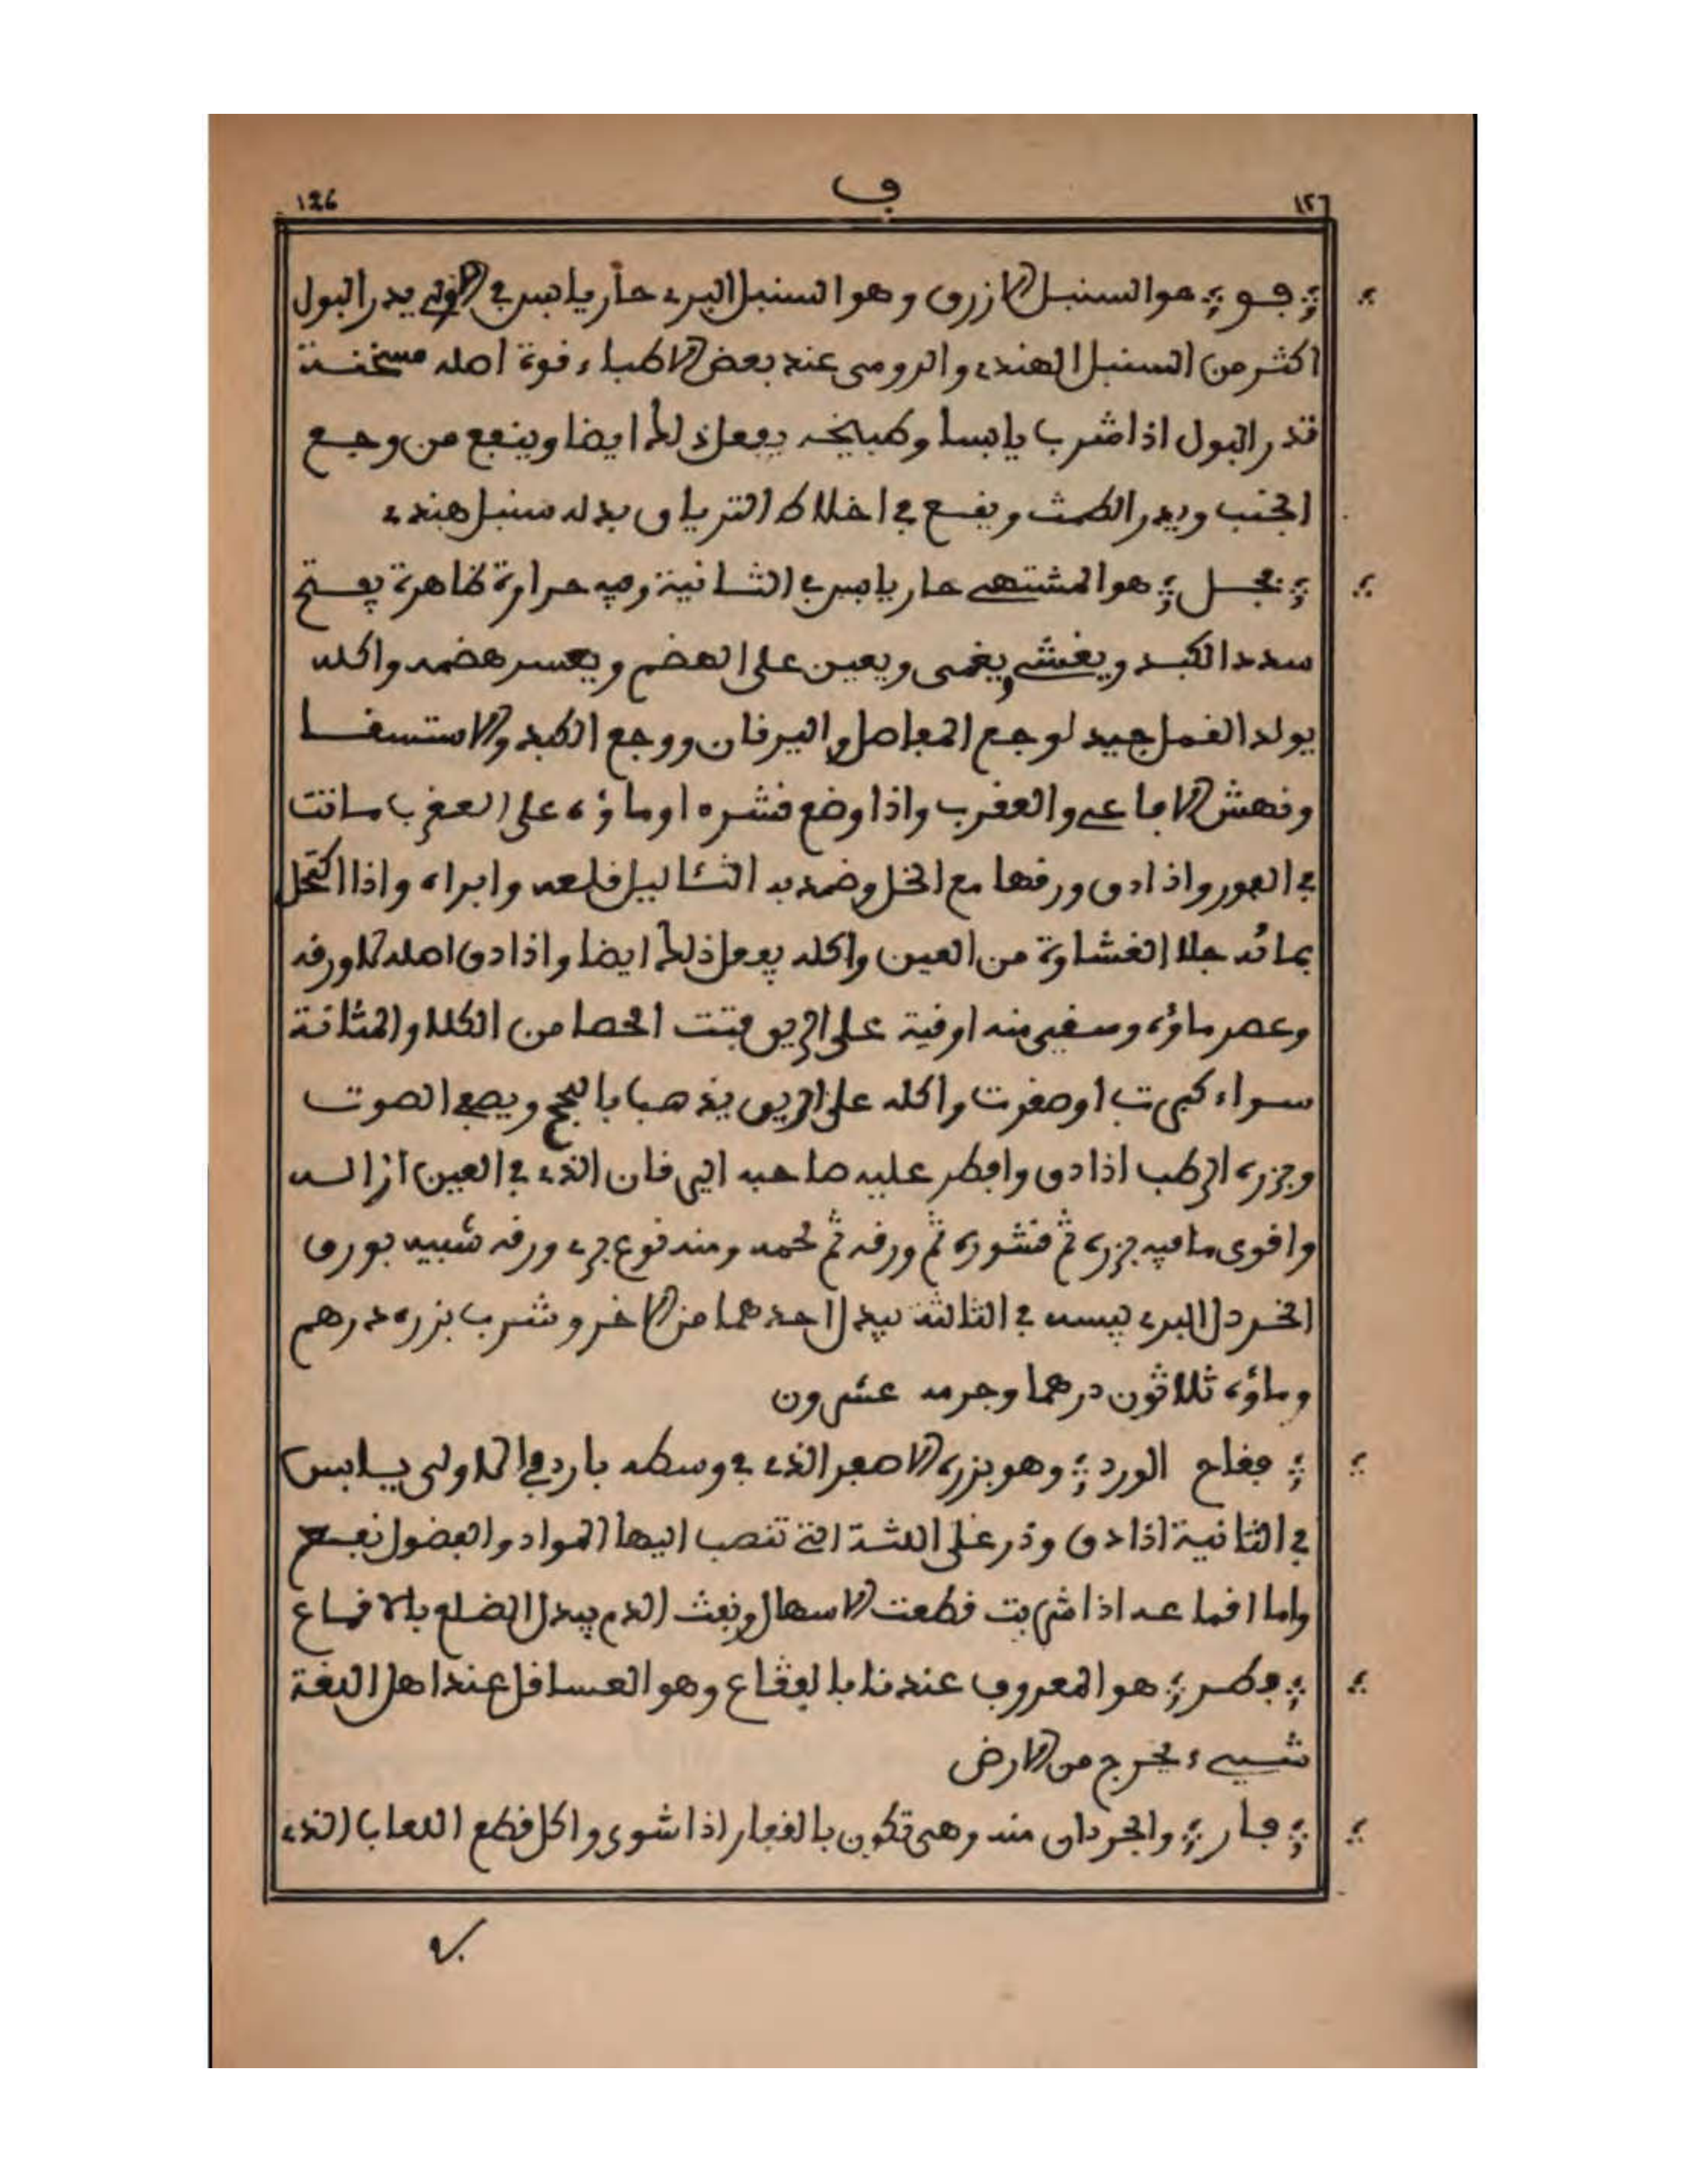 126 ف ١٢٦
فو هو السنبل الازرق وهو السنبل البري حار يابس في الاولى يدر البول
اكثر من السنبل الهندي والرومي عند بعض الاطباء قوة اصله مسخنة
تدر البول اذا شرب يابسا وطبيخه يفعل ذلك ايضا وينفع من وجع
الجنب ويدر الطمث ويقع في اخلاط الترياق بدله سنبل هندي
فجل هو المشتهى حار يابس في الثانية وفيه حرارة ظاهرة يفتح
سدد الكبد ويغشي ويغمى ويعين على الهضم ويعسر هضمه واكله
يولد القمل جيد لوجع المفاصل واليرقان ووجع الكبد والاستسقا
ونهش الافاعي والعقرب واذا وضع قشره او ماؤه على العقرب ماتت
في الفور واذا دق ورقها مع الخل وضمد به الثئاليل قلعه وابراه واذا اكتحل
بمائه جلا الغشاوة من العين واكله يفعل ذلك ايضا واذا دق اصله لا ورقه
وعصر ماؤه وسقي منه اوقية على الريق فتت الحصا من الكلا والمثانة
سواء كبرت او صغرت واكله على الريق يذهب بالبحح ويصفي الصوت
وجزره الرطب اذا دق وافطر عليه صاحبه اليرقان الذي في العين ازاله
واقوى ما فيه بزره ثم قشوره ثم ورقه ثم لحمه ومنه نوع بري ورقه شبيه بورق
الخردل البري يبسه في الثالثة يبدل احدهما من الاخر وشرب بزره درهم
وماؤه ثلاثون درهما وجرمه عشرون
فقاح الورد وهو بزره الاصفر الذي في وسطه بارد في الاولى يابس
في الثانية اذا دق وذر على اللثة التي تنصب اليها المواد والفضول نفع
واما اقماعه اذا شربت قطعت الاسهال ونفث الدم يبدل الضلع بالاقماع
فطر هو المعروف عندنا بالفقاع وهو العساقل عند اهل اللغة
شيء يخرج من الارض
فار والجرذان منه وهي تكون بالقفار اذا شوى واكل قطع اللعاب الذي